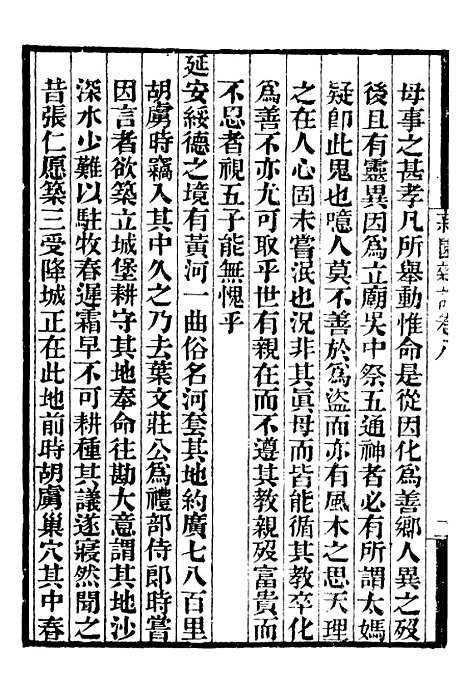 母事之甚孝凡所舉動惟命是從因化為善鄉人異之歿
後且有靈異因為立廟吳中祭五通神者必有所謂太媽
疑卽此鬼也噫人莫不善於為盜而亦有風木之思天理
之在人心固未嘗泯也況非其眞母而皆能循其教卒化
為善不亦尤可取乎世有親在而不遵其教親歿富貴而
不忍者視五子能無愧乎
延安綏德之境有黃河一曲俗名河套其地約廣七八百里
胡虜時竊入其中久之乃去葉文莊公為禮部侍郎時嘗
因言者欲築立城堡耕守其地奉命往勘大意謂其地沙
深水少難以駐牧春遲霜早不可耕種其議遂寢然聞之
昔張仁愿築三受降城正在此地前時胡虜巢穴其中春
菽園雜記卷八